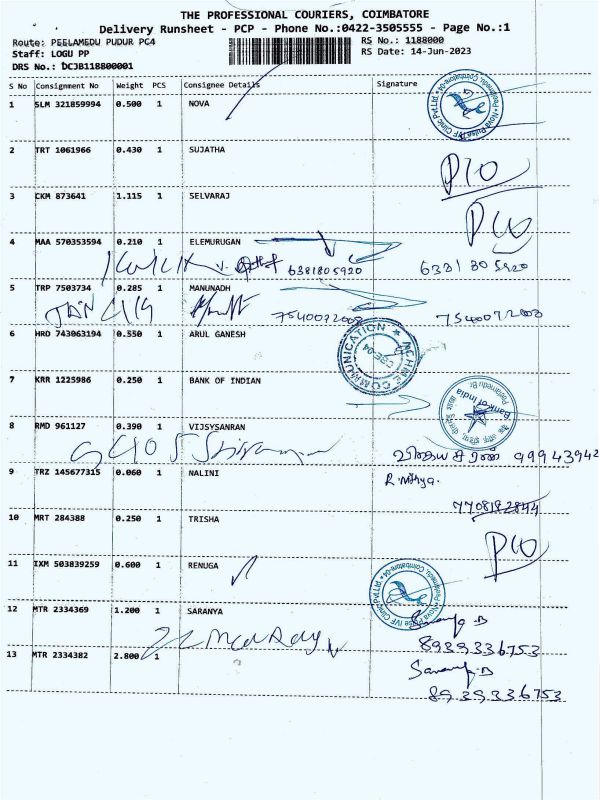 THE PROFESSIONAL COURIERS, COIMBATORE
Delivery Runsheet - PCP - Phone No.:0422-3505555 - Page No.:1
Route: PEELAMEDU PUDUR PC4 RS No.: 1188000
Staff: LOGU PP RS Date: 14-Jun-2023
DRS No.: DCJB118800001
S No Consignment No Weight PCS Consignee Details Signature
1 SLM 321859994 0.500 1 NOVA
2 TRT 1061966 0.430 1 SUJATHA
3 CKM 873641 1.115 1 SELVARAJ
4 MAA 570353594 0.210 1 ELEMURUGAN
6381805920 6381805920
5 TRP 7503734 0.285 1 MANUNADH
7540072003 7540072003
6 HRD 743063194 0.550 1 ARUL GANESH
COMMUNICATION
7 KRR 1225986 0.250 1 BANK OF INDIAN
Bank of India
8 RMD 961127 0.390 1 VIJSYSANRAN
99943942
9 TRZ 145677315 0.060 1 NALINI
R. Nithya.
7708192844
10 MRT 284388 0.250 1 TRISHA
11 IXM 503839259 0.600 1 RENUGA
Nova Pulse IVF Clinic Pvt.Ltd.
12 MTR 2334369 1.200 1 SARANYA
Saranya B
8939336753
13 MTR 2334382 2.800 1
Saranya.B
8939336753